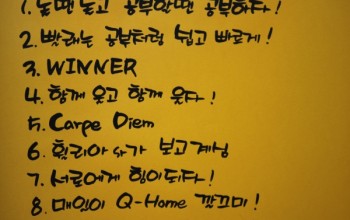 1. 놀땐 놀고 공부할땐 공부하자!
2. 빨래는 공부처럼 쉽고 빠르게!
3. WINNER
4. 함께 웃고 함께 웃다!
5. Carpe Diem
6. 보고계심
7. 서로에게 힘이되다!
8. 매일이 Q-Home 깔끄미!